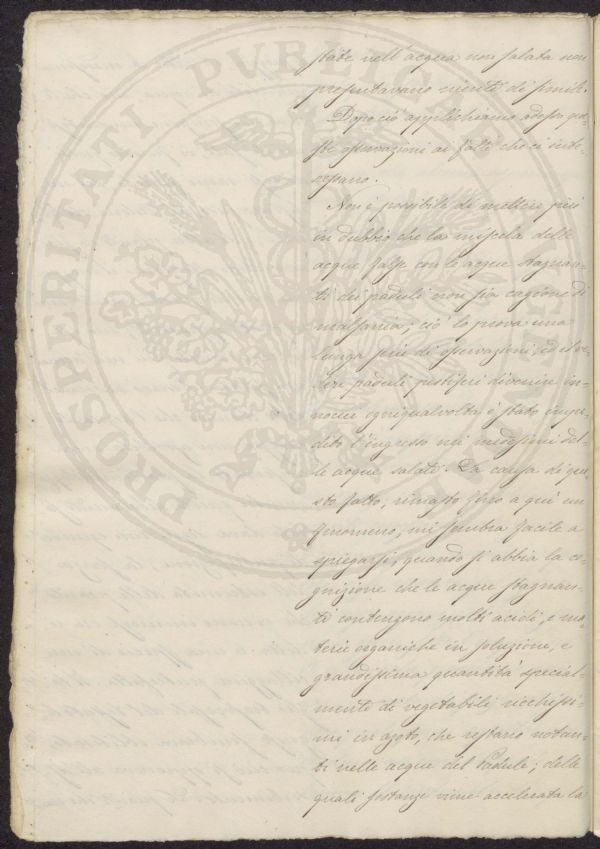 state nell'acqua non salata non
presentavano niente di simile.
Dopo ciò applichiamo adesso que-
ste osservazioni ai fatti che ci inte-
ressano.
Non è possibile di mettere più
in dubbio che la miscela delle
acque salse con le acque stagnan-
ti dei paduli non sia cagione di
malsania; ciò lo prova una
lunga serie di osservazioni ed il ve-
dere paduli pestiferi divenire in-
nocui ogniqualvolta è stato impe-
dito l'ingresso nei medesimi del-
le acque salate. La causa di que-
sto fatto, rimasto fino a qui un
fenomeno, mi sembra facile a
spiegarsi, quando si abbia la co-
gnizione che le acque stagnan-
ti contengono molti acidi, e ma-
terie organiche in soluzione, e
grandissima quantità special-
mente di vegetabili ricchissi-
mi in azoto, che restano notan-
ti nelle acque del Padule; delle
quali sostanze viene accelerata la
PROSPERITATI PVBLICAE